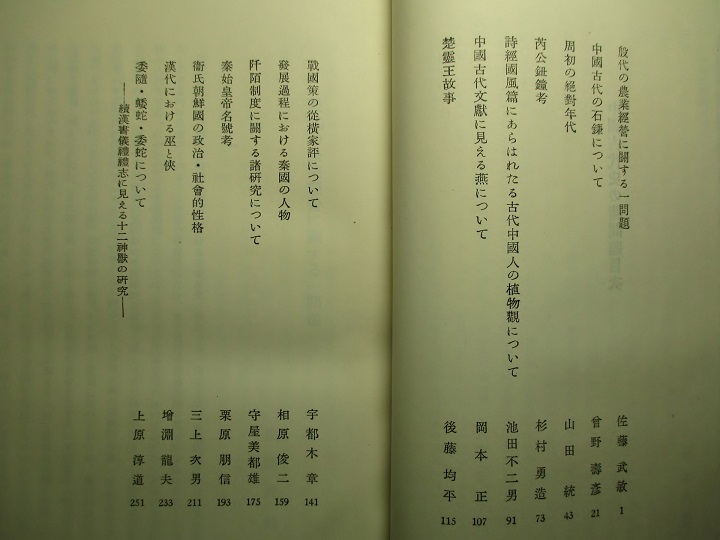 殷代の農業經營に關する一問題 佐藤武敏 1
中國古代の石鎌について 曾野壽彥 21
周初の絕對年代 山田統 43
芮公鈕鐘考 杉村勇造 73
詩經國風篇にあらはれたる古代中國人の植物觀について 池田不二男 91
中國古代文獻に見える燕について 岡本正 107
楚靈王故事 後藤均平 115
戰國策の從橫家評について 宇都木章 141
發展過程における秦國の人物 相原俊二 159
阡陌制度に關する諸硏究について 守屋美都雄 175
秦始皇帝名號考 栗原朋信 193
衞氏朝鮮國の政治・社會的性格 三上次男 211
漢代における巫と俠 增淵龍夫 233
委隨・蜲蛇・委蛇について 上原淳道 251
——續漢書儀禮禮志に見える十二神獸の硏究——